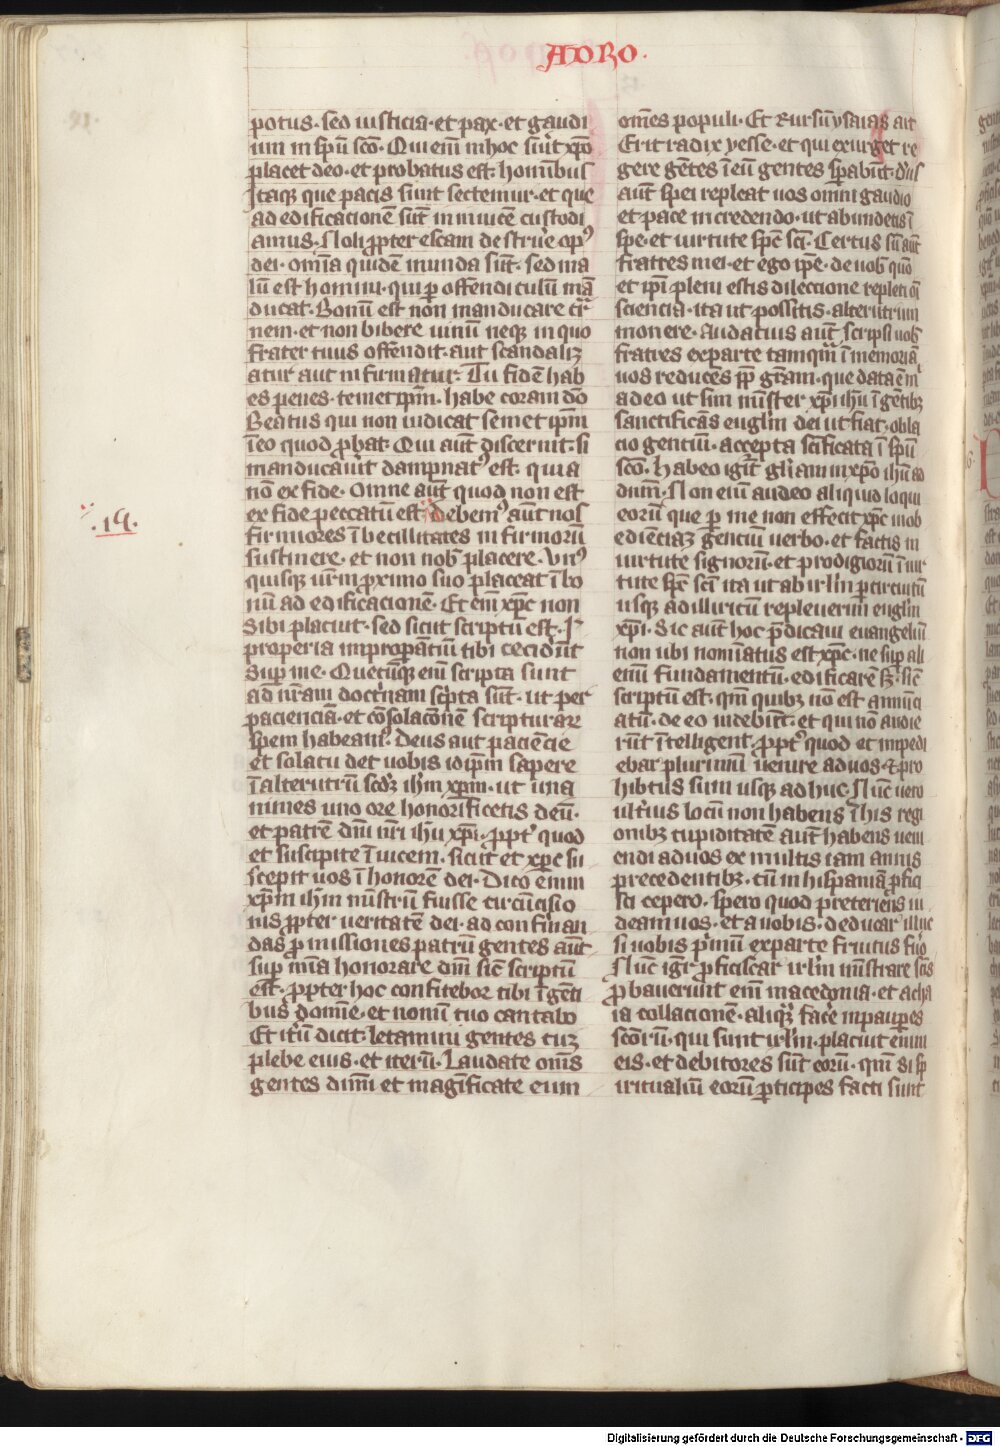 ADRO.
potus. sed iusticia. et pax. et gaudi
um in spū scō. Qui em̄ inhoc suīt xpō
placet deo. et probatus est hominibus
Itaqꝫ que pacis sunt sectemur. et que
ad edificacionē sūt in inuicē custodi
amus. Noli ꝓpter escam destrue opꝰ
dei. Om̄ia quidē munda sūt. sed ma
lū est homini. qui ꝑ offendiculūm mā
ducat. Bonū est non manducare car
nem. et non bibere uinū neqꝫ in quo
frater tuus offendit. aut scandaliz
atur aut infirmatur. Tu fidē hab
es penes. temetipm̄. habe coram dō
Beatus qui non iudicat semetipm̄
īeo quod ꝓbat. Qui aūt discernit. si
manducauīt dampnatꝰ est. quia
nō ex fide. Omne aūt quod non est
ex fide peccatū est. Debemꝰ aūt nos
.14.
firmiores ībecillitates infirmorū
sustinere. et non nob̄ placere. Vnꝰ
quisqꝫ ur̄m ꝓximo suo placeat ī bo
nū ad edificacionē. Et em̄ xp̄c non
sibi placuit. sed sicut scriptū est. Im
properia improperantiū tibi cecider̄ūt
sup me. Quecūqꝫ em̄ scripta sunt
ad nr̄am doctrīnam scp̄ta sūt. ut per
pacienciā. et cōsolacōnem scripturar
spem habeamꝰ. Deus aut paciēcie
et solatii det uobis idip̄m sapere
ī alterutrū scd̄ꝫ ih̄m xp̄m. ut una
nimes uno ore honorificetis deū.
et patrē dn̄i nr̄i ih̄u xp̄i. ꝓptꝰ quod
et suscipite īuicem. sicut et xp̄c su
scepit uos ī honorē dei. Dico enim
xp̄m ih̄m mīstrū fuisse circūcisio
nis ꝓpter ueritatē dei. ad confirman
das ꝓmissiones patrū gentes aūt
sup mīa honorare dm̄ sic̄ scriptū
est. ꝓpter hoc confitebor tibi ī gēti
bus domīe. et nomī tuo cantabo
Et itr̄ū dicit. letamini gentes cuꝫ
plebe eius. et iterū. Laudate om̄s
gentes dnm̄ et magnificate eum
om̄es populi. Et Rursū ysaias ait
Erit radix yesse. et qui exurget re
gere gētes ī eū gentes spabūt. Dūs
aūt spei repleat uos omni gaudio
et pace in credendo. ut abundetis ī
spe. et uirtute sp̄c sc̄i. Certus sū aūt
fratres mei. et ego ip̄e. de uob̄ quō
et ip̄i pleni estis dileccione repleti oī
sciencia. ita ut possitis. alterutrum
monere. Audacius aūt scripsi uob̄
fratres ex parte tamqm̄ ī memoriā
uos reducēs ꝓp gr̄am. que data ē m̄
a deo ut sim mīster xp̄i ih̄u ī gētibꝫ
sanctificās eugl̄m dei ut fiat. obla
cio gentiū. accepta sc̄ificata ī spū
scō. habeo igīt gl̄iam in xpō ih̄u ad
dnm̄. Non eīm audeo aliquid loqui
eorū que ꝑ me non effecit xp̄c in ob
ediēciaꝫ genciū uerbo. et factis in
uirtute signorū. et prodigiorū ī uir
tute sp̄c sc̄i ita ut ab irl̄m ꝑ circuitū
usqꝫ ad illiricū repleuerim eugl̄m
xp̄i. Sic aūt hoc p̄dicaui euangeliū
non ubi nomīatus est xp̄c. ne sup ali
enū fundamentū. edificarē sꝫ. sic̄
scriptū est. qm̄ quibꝫ nō est annūci
atū. de eo uidebūt. et qui nō audie
rūt ītelligent. ꝓptꝰ quod et impedi
ebar plurimū uenire ad uos. & pro
hibitus sum usqꝫ ad huc. Nūc uero
ultr̄ius locū non habens ī his regi
onibꝫ cupiditatē aūt habens ueni
endi ad uos ex multis iam annis
precedentibꝫ. cū in hispaniā ꝓfici
sci cepero. spero quod preteriēs ui
deam uos. et a uobis. deducar illuc
si uobis p̄mū ex parte fruitus fūo
Nūc igr̄ ꝓficiscar irl̄m mīstrare sc̄is
ꝓbauerunt em̄ macedonia. et acha
ia collacionē. aliqꝫ facē in paupes
scōrū. qui sunt irl̄m. placuit enim
eis. et debitores sūt eorū. qm̄ si sp
iritualiū eorū ꝑticipes facti sunt
Digitalisierung gefördert durch die Deutsche Forschungsgemeinschaft - DFG